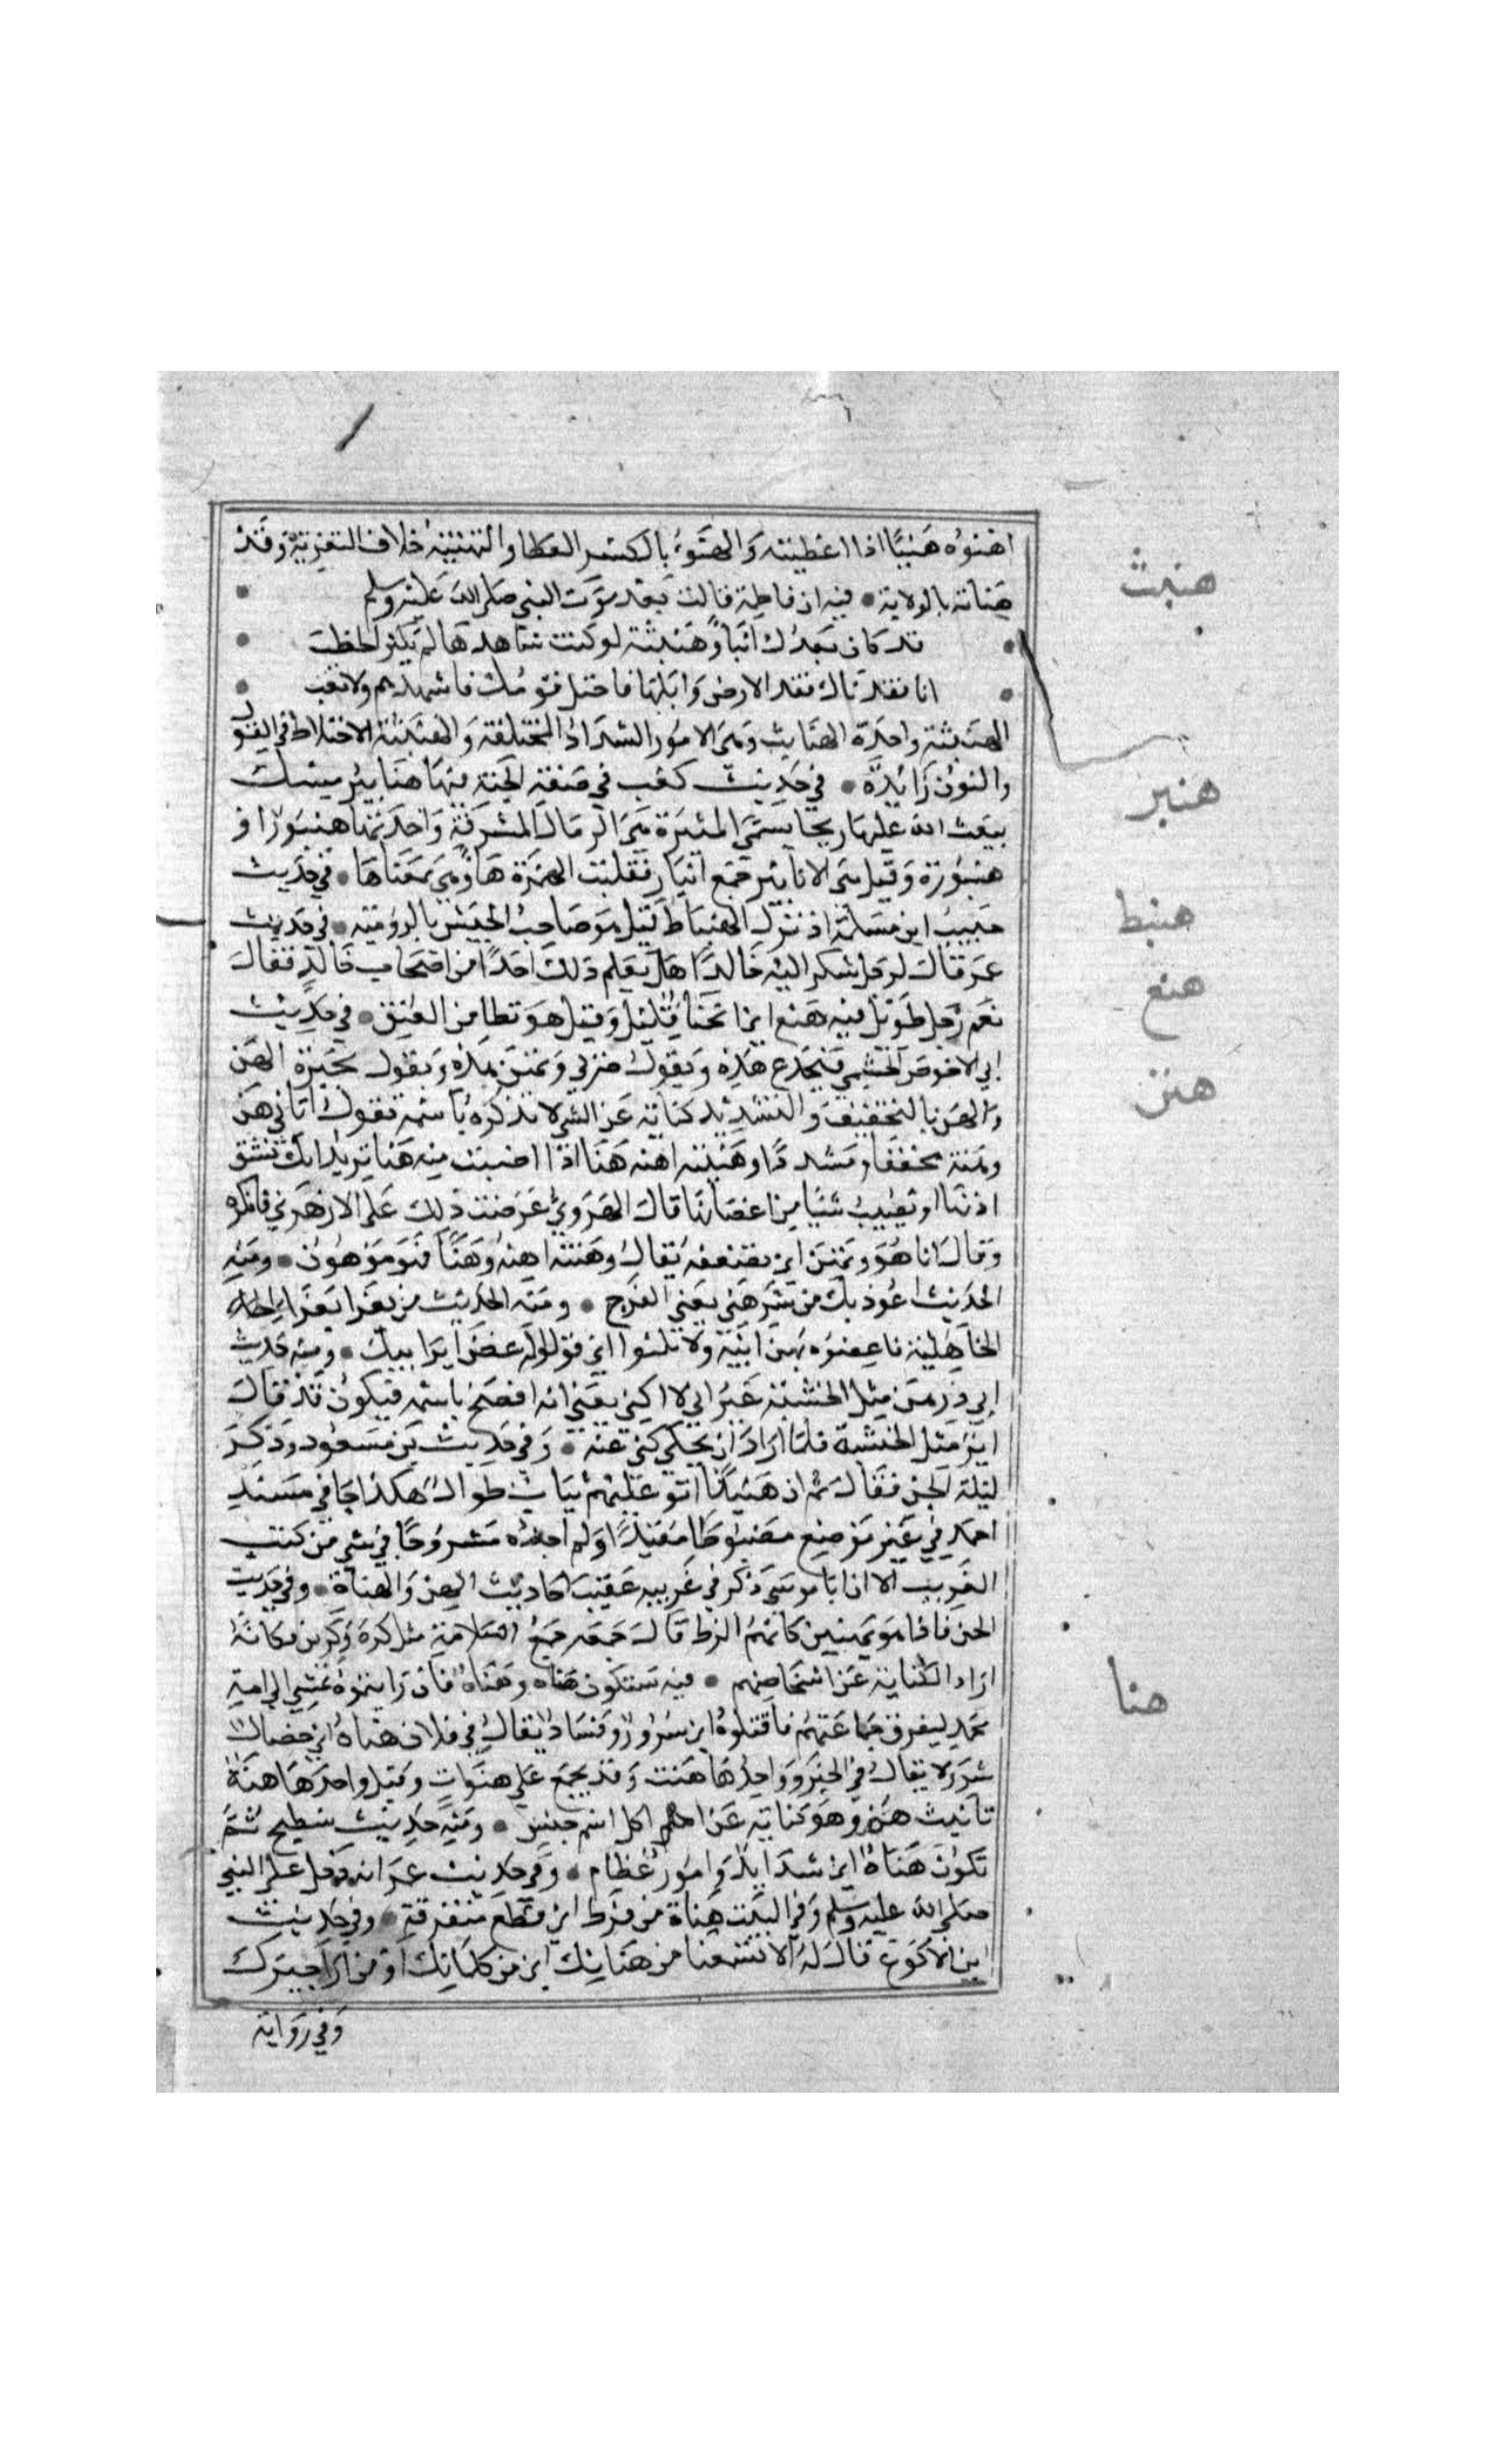 اهنوه هنيًا اذا اعطيته والهنوء بالكسر العطا والتهنية خلاف التعزية وقد
هناته بالولاية • فيه ان فاطمة قالت بعد موت النبي صلى الله عليه وسلم •
• قد كان بعدك انبا وهنبثة لو كنت شاهدها لم يكثر الخطب •
• انا فقدناك فقد الارض وابلها فاختل قومك فاشهدهم ولا تغب •
هنبث
الهنبثة واحدة الهنابث وهي الامور الشداد المختلفة والهنبثة الاختلاط في القول
والنون زائدة • في حديث كعب في صفة الجنة فيها هنابير مسك
هنبر
يبعث الله عليها ريحا تسمى المثيرة هي الرمال المشرفة واحدتها هنبورا او
هنبورة وقيل هي الانابير جمع انبار فقلبت الهمزة ها وهي بمعناها • في حديث
هنبط
حبيب ابن مسلمة اذ نزل الهنباط قيل هو صاحب الجيش بالرومية • في حديث
هنع
عمر قال لرجل شكر اليه خالدًا هل يعلم ذلك احدًا من اصحاب خالد فقال
نعم رجل طويل فيه هنع اي انحنا قليل وقيل هو تطامن العنق • في حديث
هنن
ابي الاحوص الجشمي فتجدع هذه وتقول صربى وتهن هذه وتقول بحيرة الهن
والهن بالتخفيف والتشديد كناية عن الشي لا تذكره باسمه تقول اتاني هن
وهنة مخففا ومشددًا وهننته اهنه هنا اذا اصبت منه هنا تريد انك تشق
اذنها او تصيب شيا من اعضائها قال الهروي عرضت ذلك على الازهري فانكره
وقال انا هو وتهن اي تضعفه يقال وهنته اهنه وهنًا فهو موهون • ومنه
الحديث اعوذ بك من شر هني يعني الفرج • ومنه الحديث من تعزا بعزا
الجاهلية فاعضوه بهن ابيه ولا تكنوا اي قولوا له عض اير ابيك • ومنه حديث
ابي ذر هن مثل الخشبة غير اني لا اكني يعني انه افصح باسمه فيكون قد قال
اير مثل الخشبة فلما اراد ان يحكي كنى عنه • وفي حديث بن مسعود وذكر
ليلة الجن فقال ثم ان هنينًا اتو عليهم ثياب طوال هكذا جا في مسند
احمد في غير موضع مضبوطا مقيدًا ولم اجده مشروحًا في شي من كتب
الغريب الا ان ابا موسى ذكر في غريبه عقيب احاديث الهن والهناة • وفي حديث
الجن فاذا هو بهنين كانهم الزط قال جمعه جمع السلامة مثل كرة وكرين فكانه
هنا
اراد الكناية عن اشخاصهم • فيه ستكون هناه وهناه فان رايتموه يمشي الى امة
محمد ليفرق جماعتهم فاقتلوه اي شرور وفساد يقال في فلان هناه اي خصال
شر ولا يقال في الخير وواحدها هنت وقد يجمع على هنوات وقيل واحدها هنة
تانيث هن وهو كناية عن كل اسم جنس • ومنه حديث سطيح ثم
تكون هناة اي شدايد وامور عظام • وفي حديث عمر انه دخل على النبي
صلى الله عليه وسلم وفي البيت هناة من قرظ اي قطع متفرقة • وفي حديث
ابن الاكوع قال له الا تسمعنا من هناتك اي من كلماتك او من اراجيزك
وفي رواية